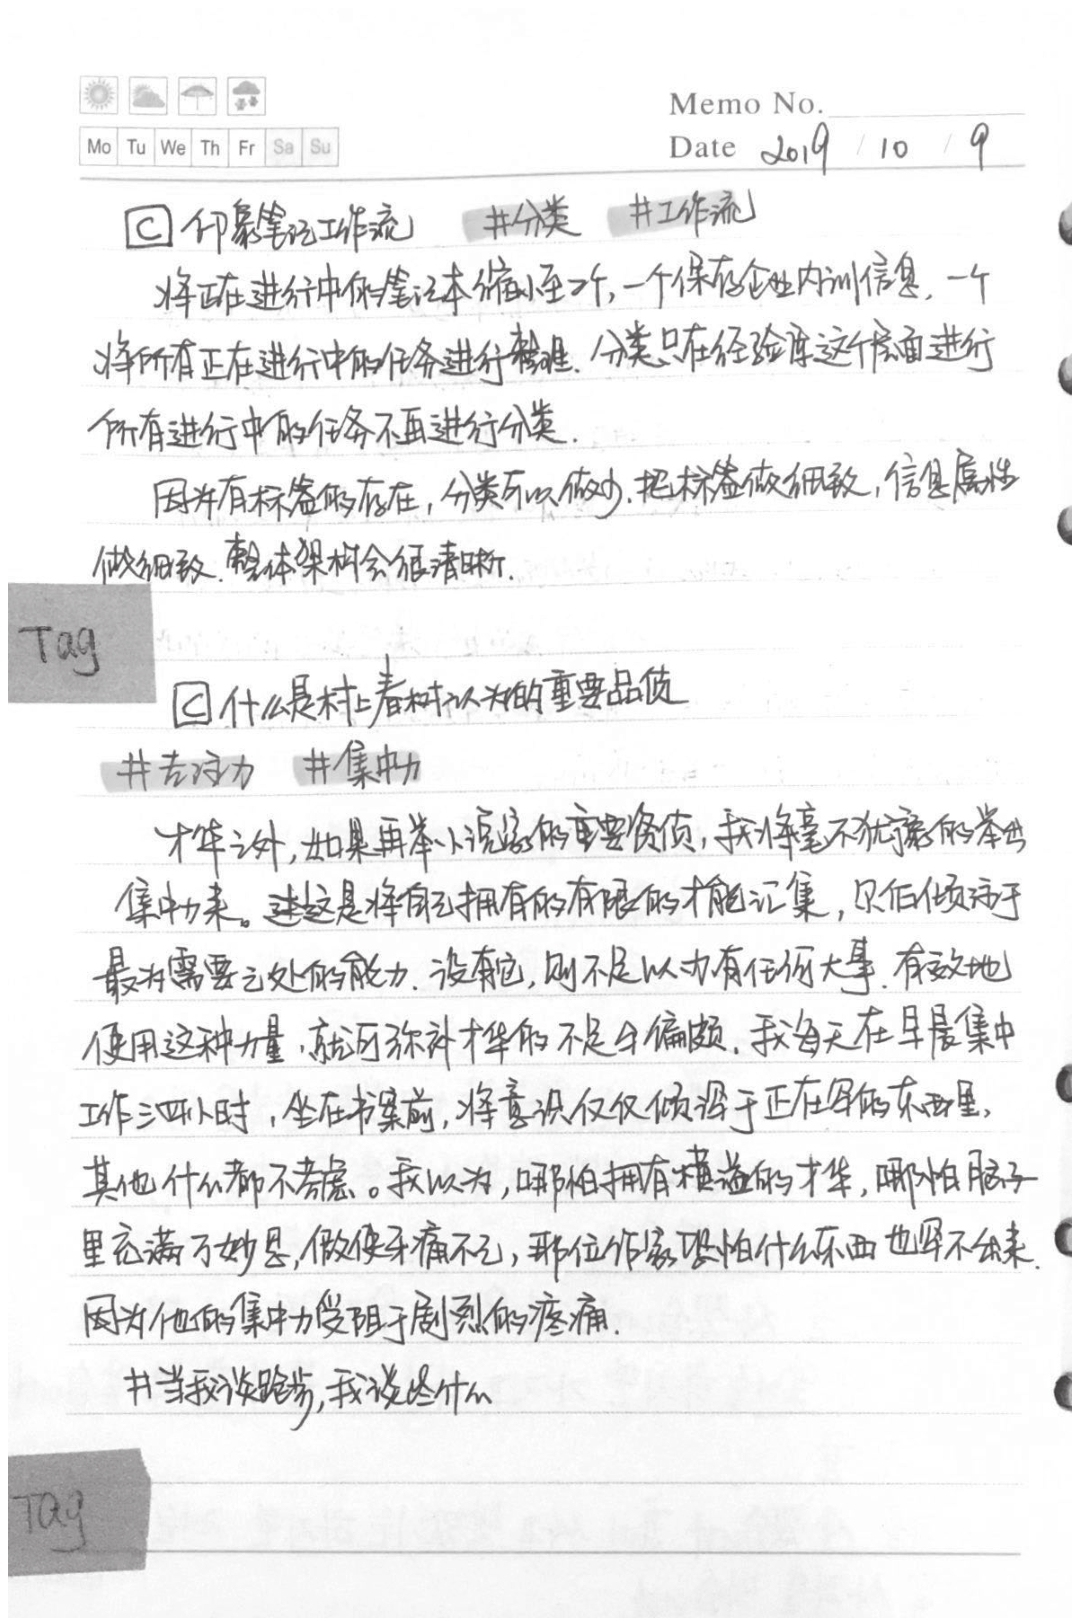 Memo No.
Mo Tu We Th Fr Sa Su
Date 2019 / 10 / 9
C 印象笔记工作流 #分类 #工作流
将正在进行中的笔记本缩小至2个,一个保存企业内训信息,一个
将所有正在进行中的任务进行整理.分类只在经验库这个层面进行
所有进行中的任务不再进行分类.
因为有标签的存在,分类可以做少.把标签做细致,信息属性
做细致.整体架构会很清晰.
Tag
C 什么是村上春树认为的重要品质
#专注力 #集中力
才华之外,如果再举小说家的重要资质,我将毫不犹豫的举出
集中力来。这是将自己拥有的有限的才能汇集,只倾注于
最为需要之处的能力.没有它,则不足以力有任何大事.有效地
使用这种力量,就可弥补才华的不足与偏颇.我每天在早晨集中
工作三四小时,坐在书案前,将意识仅仅倾泻于正在写的东西里,
其他什么都不考虑。我以为,哪怕拥有横溢的才华,哪怕脑子
里充满了妙思,假使牙痛不已,那位作家恐怕什么东西也写不出来.
因为他的集中力受阻于剧烈的疼痛.
#当我谈跑步,我谈些什么
Tag